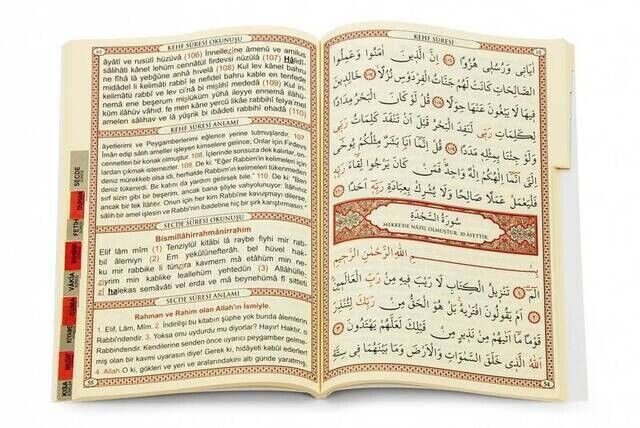 KEHF SÛRESİ OKUNUŞU
âyâtî ve rusulî hüzüvâ (106) İnnellezîne âmenû ve amilus
sâlihâti kânet lehüm cennâtül firdevsi nüzülâ (107) Hâlidî-
ne fîhâ lâ yebğûne anhâ hivelâ (108) Kul lev kânel bahru
midâdel li kelimâti rabbî le nefidel bahru kable en tenfede
kelimâtü rabbî ve lev ci'nâ bi mislihî mededâ (109) Kul in-
nemâ ene beşerum mislüküm yûhâ ileyye ennemâ ilâhü-
küm ilâhüv vâhid, fe men kâne yercû likâe rabbihî felya'mel
amelen sâlihav ve lâ yüşrik bi ıbâdeti rabbihî ehadâ (110)
KEHF SÛRESİ ANLAMI
âyetlerimi ve Peygamberlerimi eğlence yerine tutmuşlardır. 107.
İman edip salih ameller işleyen kimselere gelince; Onlar için Firdevs
cennetleri bir konak olmuştur. 108. İçlerinde sonsuza dek kalırlar, on-
lardan çıkmak istemezler. 109. De ki: "Eğer Rabbim'in kelimeleri için
deniz mürekkeb olsa idi, herhalde Rabbim'in kelimeleri tükenmeden
deniz tükenirdi. Bir katını da yardım getirsek bile." 110. De ki: "Ben
sırf sizin gibi bir beşerim, ancak bana şöyle vahyolunuyor: İlâhınız
ancak bir tek İlâhtır. Onun için her kim Rabbi'ne kavuşmayı dilerse,
salih bir amel işlesin ve Rabbi'nin ibadetine hiç bir şirk karıştırmasın."
SECDE SÛRESİ OKUNUŞU
Bismillâhirrahmânirrahîm
Elif lâm mîm (1) Tenzîylül kitâbi lâ raybe fîyhi mir rab-
bil âlemîyn (2) Em yekûlûnefterâh, bel hüvel hak-
ku mir rabbike li tünzira kavmem mâ etâhüm min ne-
zîyrim min kablike leallehüm yehtedûn (3) Allâhülle-
zî halekas semâvâti vel erda ve mâ beynehümâ fî sitteti
SECDE SÛRESİ ANLAMI
Rahman ve Rahim olan Allah'ın İsmiyle.
1. Elif, Lâm, Mîm. 2. İndirilişi bu kitabın şüphe yok bunda âlemlerin
Rabbi'ndendir. 3. Yoksa onu uydurdu mu diyorlar? Hayır! Haktır, o
Rabbi'nden. Kendilerine senden önce uyarıcı peygamber gelme-
miş olan bir kavmi uyarasın diye! Gerek ki, hidâyeti kabûl ederler!
4. Allah O ki, gökleri ve yeri ve aralarındakini altı günde yaratmış,
KEHF SÛRESİ
اٰيَاتٖى وَرُسُلٖى هُزُوًا ﴿١٠٦﴾ اِنَّ الَّذٖينَ اٰمَنُوا وَعَمِلُوا
الصَّالِحَاتِ كَانَتْ لَهُمْ جَنَّاتُ الْفِرْدَوْسِ نُزُلًا ﴿١٠٧﴾ خَالِدٖينَ
فٖيهَا لَا يَبْغُونَ عَنْهَا حِوَلًا ﴿١٠٨﴾ قُلْ لَوْ كَانَ الْبَحْرُ مِدَادًا
لِكَلِمَاتِ رَبّٖى لَنَفِدَ الْبَحْرُ قَبْلَ اَنْ تَنْفَدَ كَلِمَاتُ رَبّٖى
وَلَوْ جِئْنَا بِمِثْلِهٖ مَدَدًا ﴿١٠٩﴾ قُلْ اِنَّمَا اَنَا بَشَرٌ مِثْلُكُمْ يُوحٰى
اِلَىَّ اَنَّمَا اِلٰهُكُمْ اِلٰهٌ وَاحِدٌ فَمَنْ كَانَ يَرْجُوا لِقَاءَ رَبِّهٖ
فَلْيَعْمَلْ عَمَلًا صَالِحًا وَلَا يُشْرِكْ بِعِبَادَةِ رَبِّهٖ اَحَدًا ﴿١١٠﴾
سُورَةُ السَّجْدَةِ
MEKKE'DE NÂZİL OLMUŞTUR. 30 ÂYETTİR.
بِسْمِ اللّٰهِ الرَّحْمٰنِ الرَّحٖيمِ
الٓمٓ ﴿١﴾ تَنْزٖيلُ الْكِتَابِ لَا رَيْبَ فٖيهِ مِنْ رَبِّ الْعَالَمٖينَ
﴿٢﴾ اَمْ يَقُولُونَ افْتَرٰيهُ بَلْ هُوَ الْحَقُّ مِنْ رَبِّكَ لِتُنْذِرَ
قَوْمًا مَا اَتٰيهُمْ مِنْ نَذٖيرٍ مِنْ قَبْلِكَ لَعَلَّهُمْ يَهْتَدُونَ ﴿٣﴾
اَللّٰهُ الَّذٖى خَلَقَ السَّمٰوَاتِ وَالْاَرْضَ وَمَا بَيْنَهُمَا فٖى سِتَّةِ
SECDE
DUHAN
FETİH
VÂKIA
KIYAME